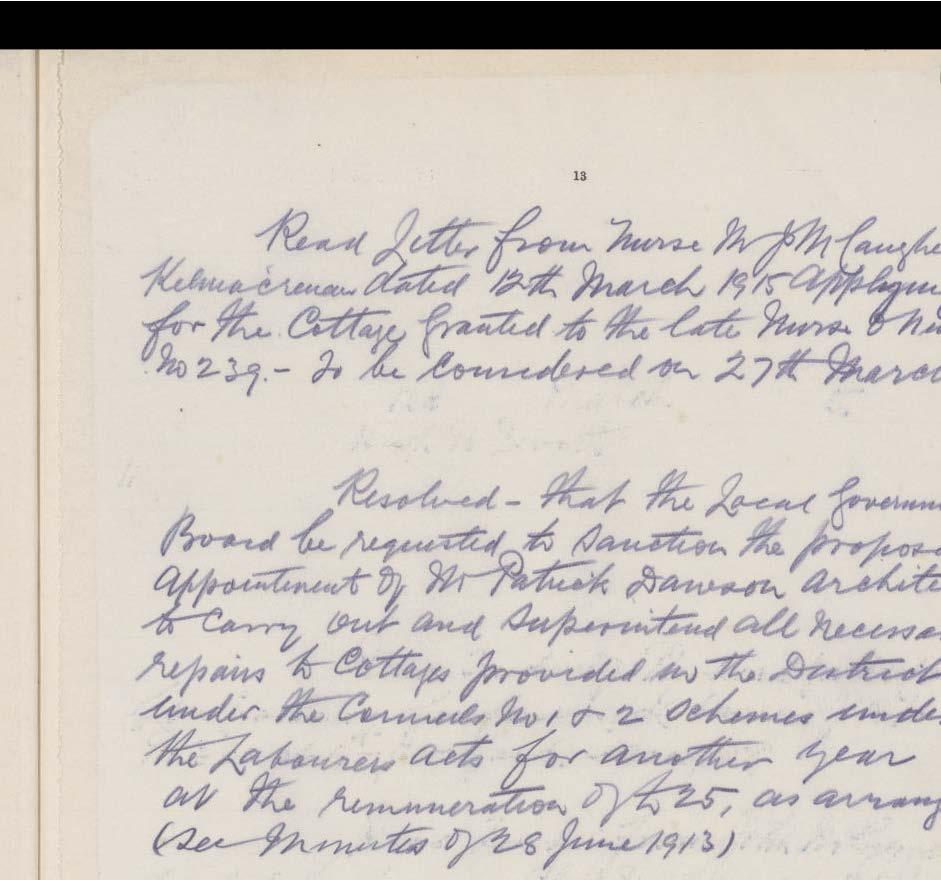 13
Read Letter from Nurse M J McCaughe
Kilmacrenan dated 12th March 1915 Applyin
for the Cottage granted to the late Nurse
No 239. - To be Considered on 27th March
Resolved - that the Local Governm
Board be requested to Sanction the propose
Appointment of Mr Patrick Dawson Archite
to Carry out and Superintend all necessa
repairs to Cottages provided in the District
under the Councils No 1 & 2 Schemes unde
the Labourers Acts for another year
at the remuneration of £25, as arrang
(See Minutes of 28 June 1913)